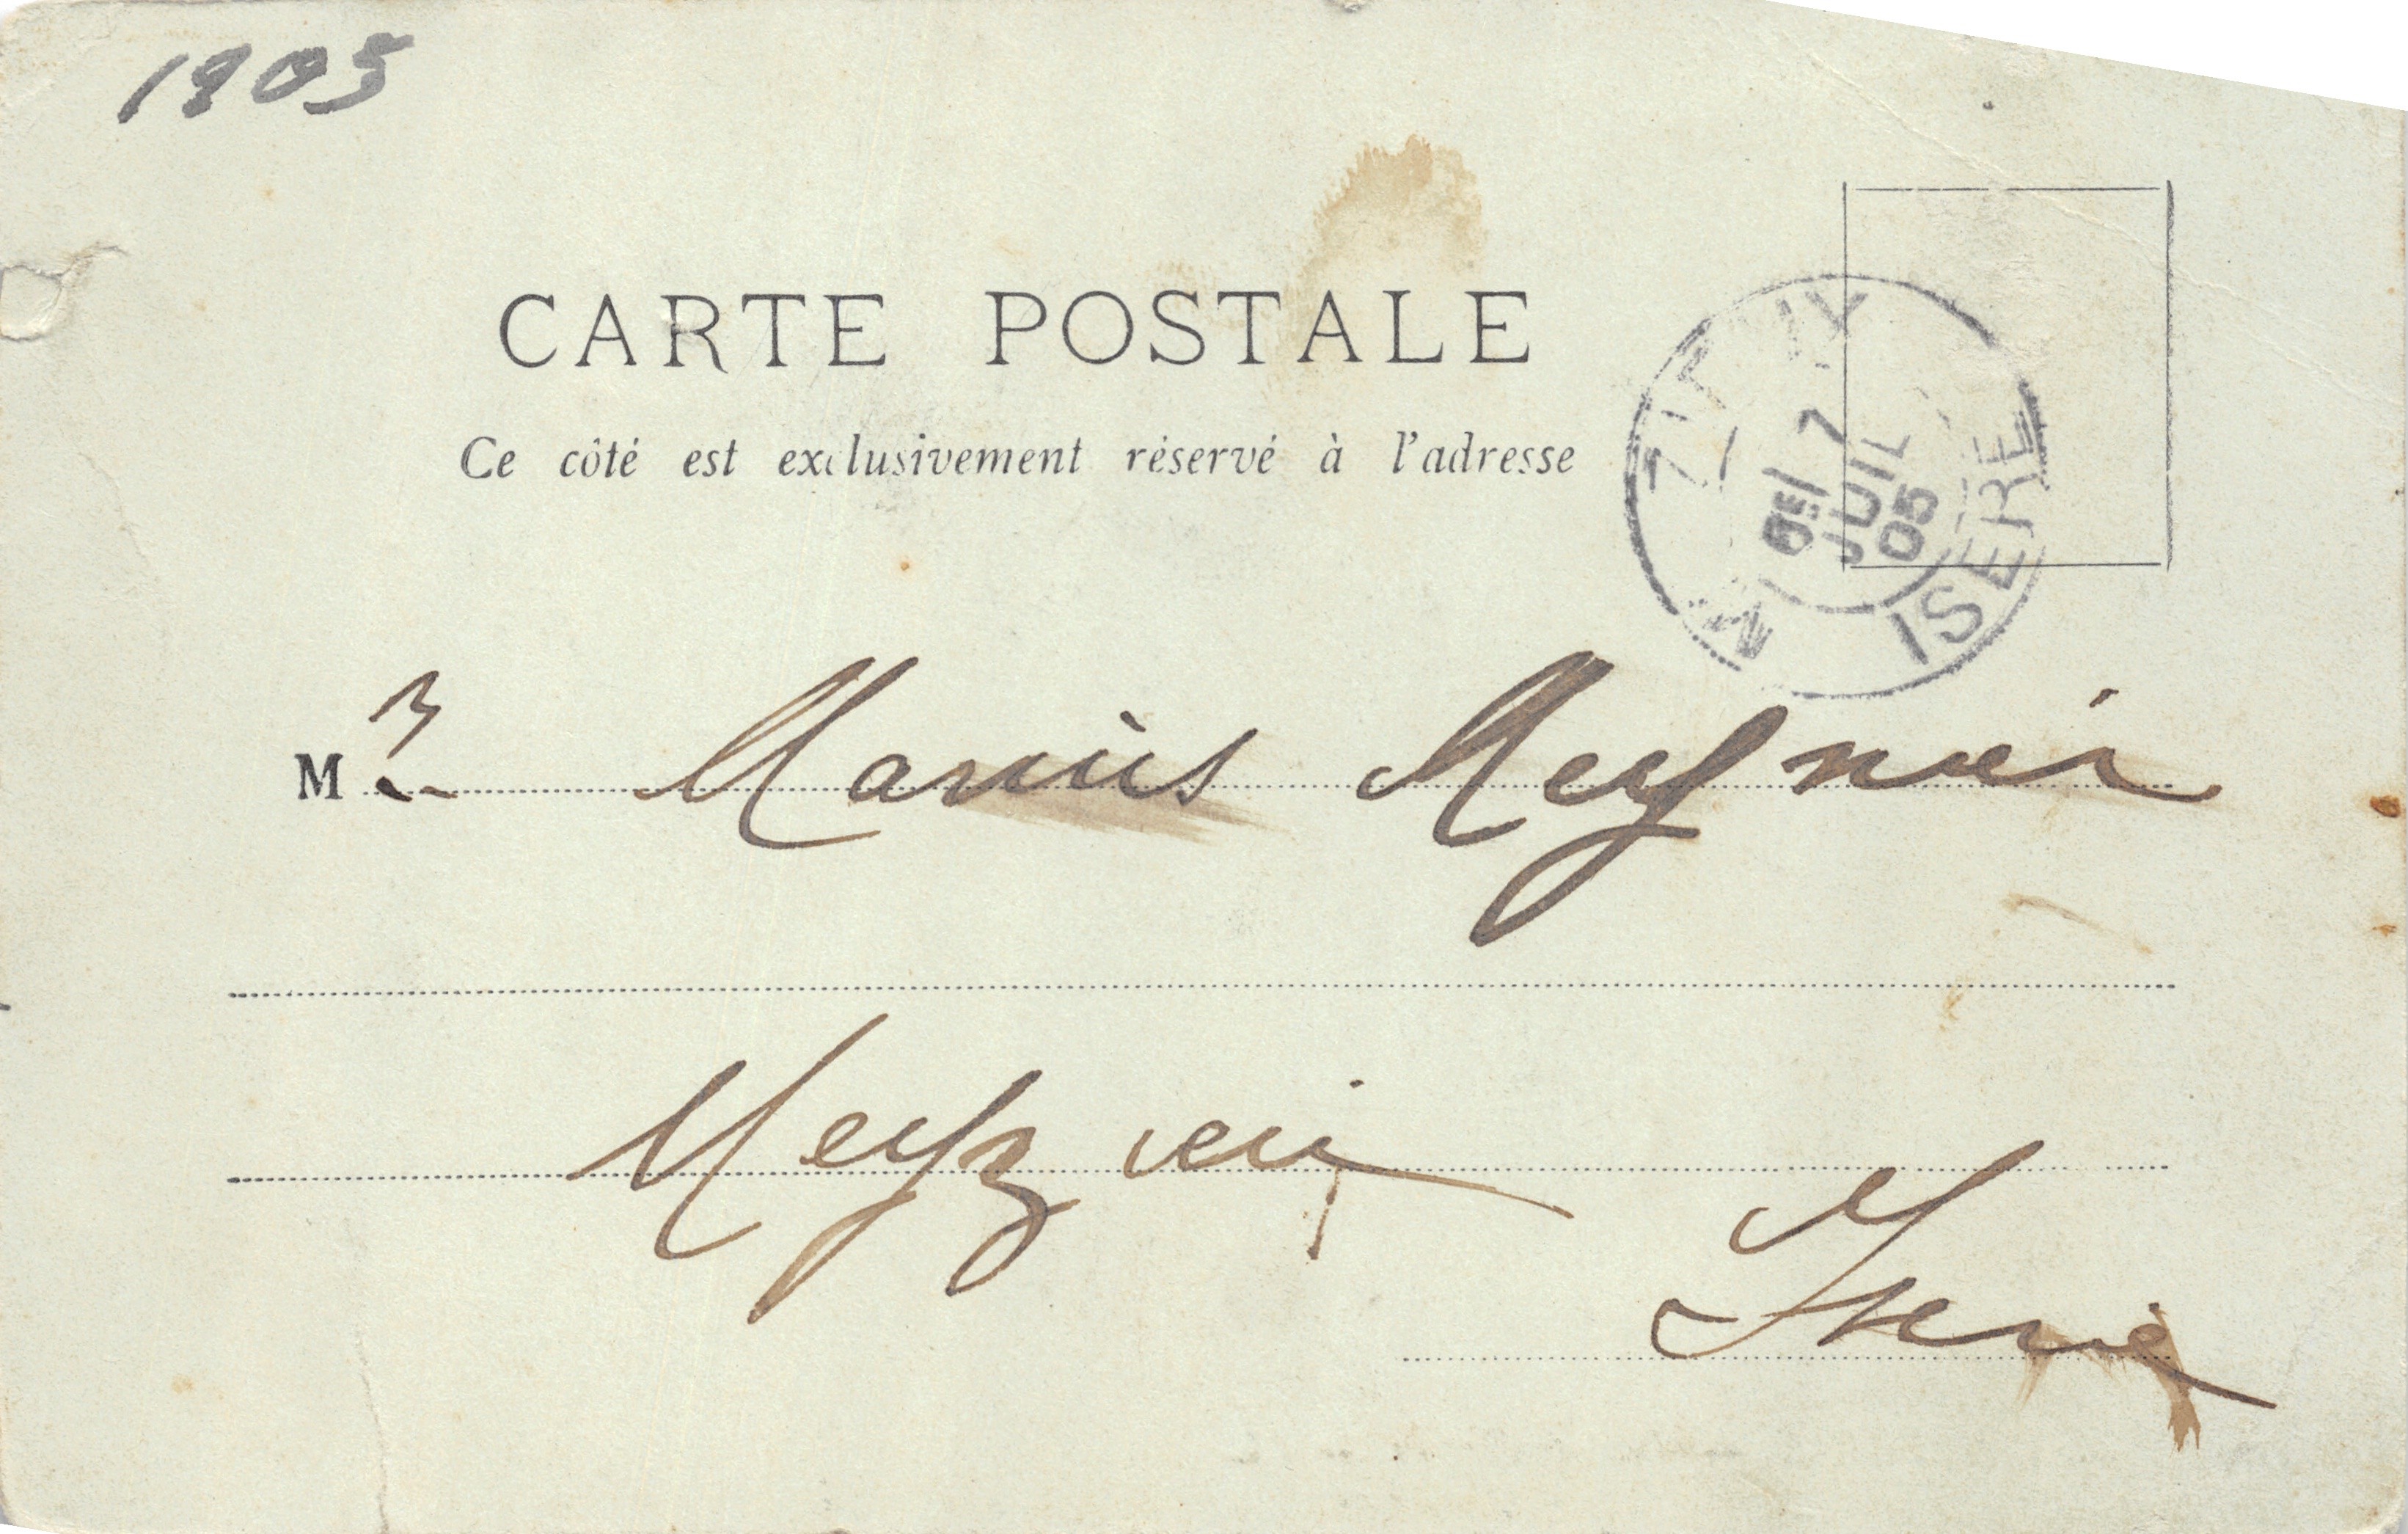 1905
CARTE POSTALE
Ce côté est exclusivement réservé à l'adresse
7
JUIL
05
ISERE
Mr Marius Meynier
Meyzieu
Isère